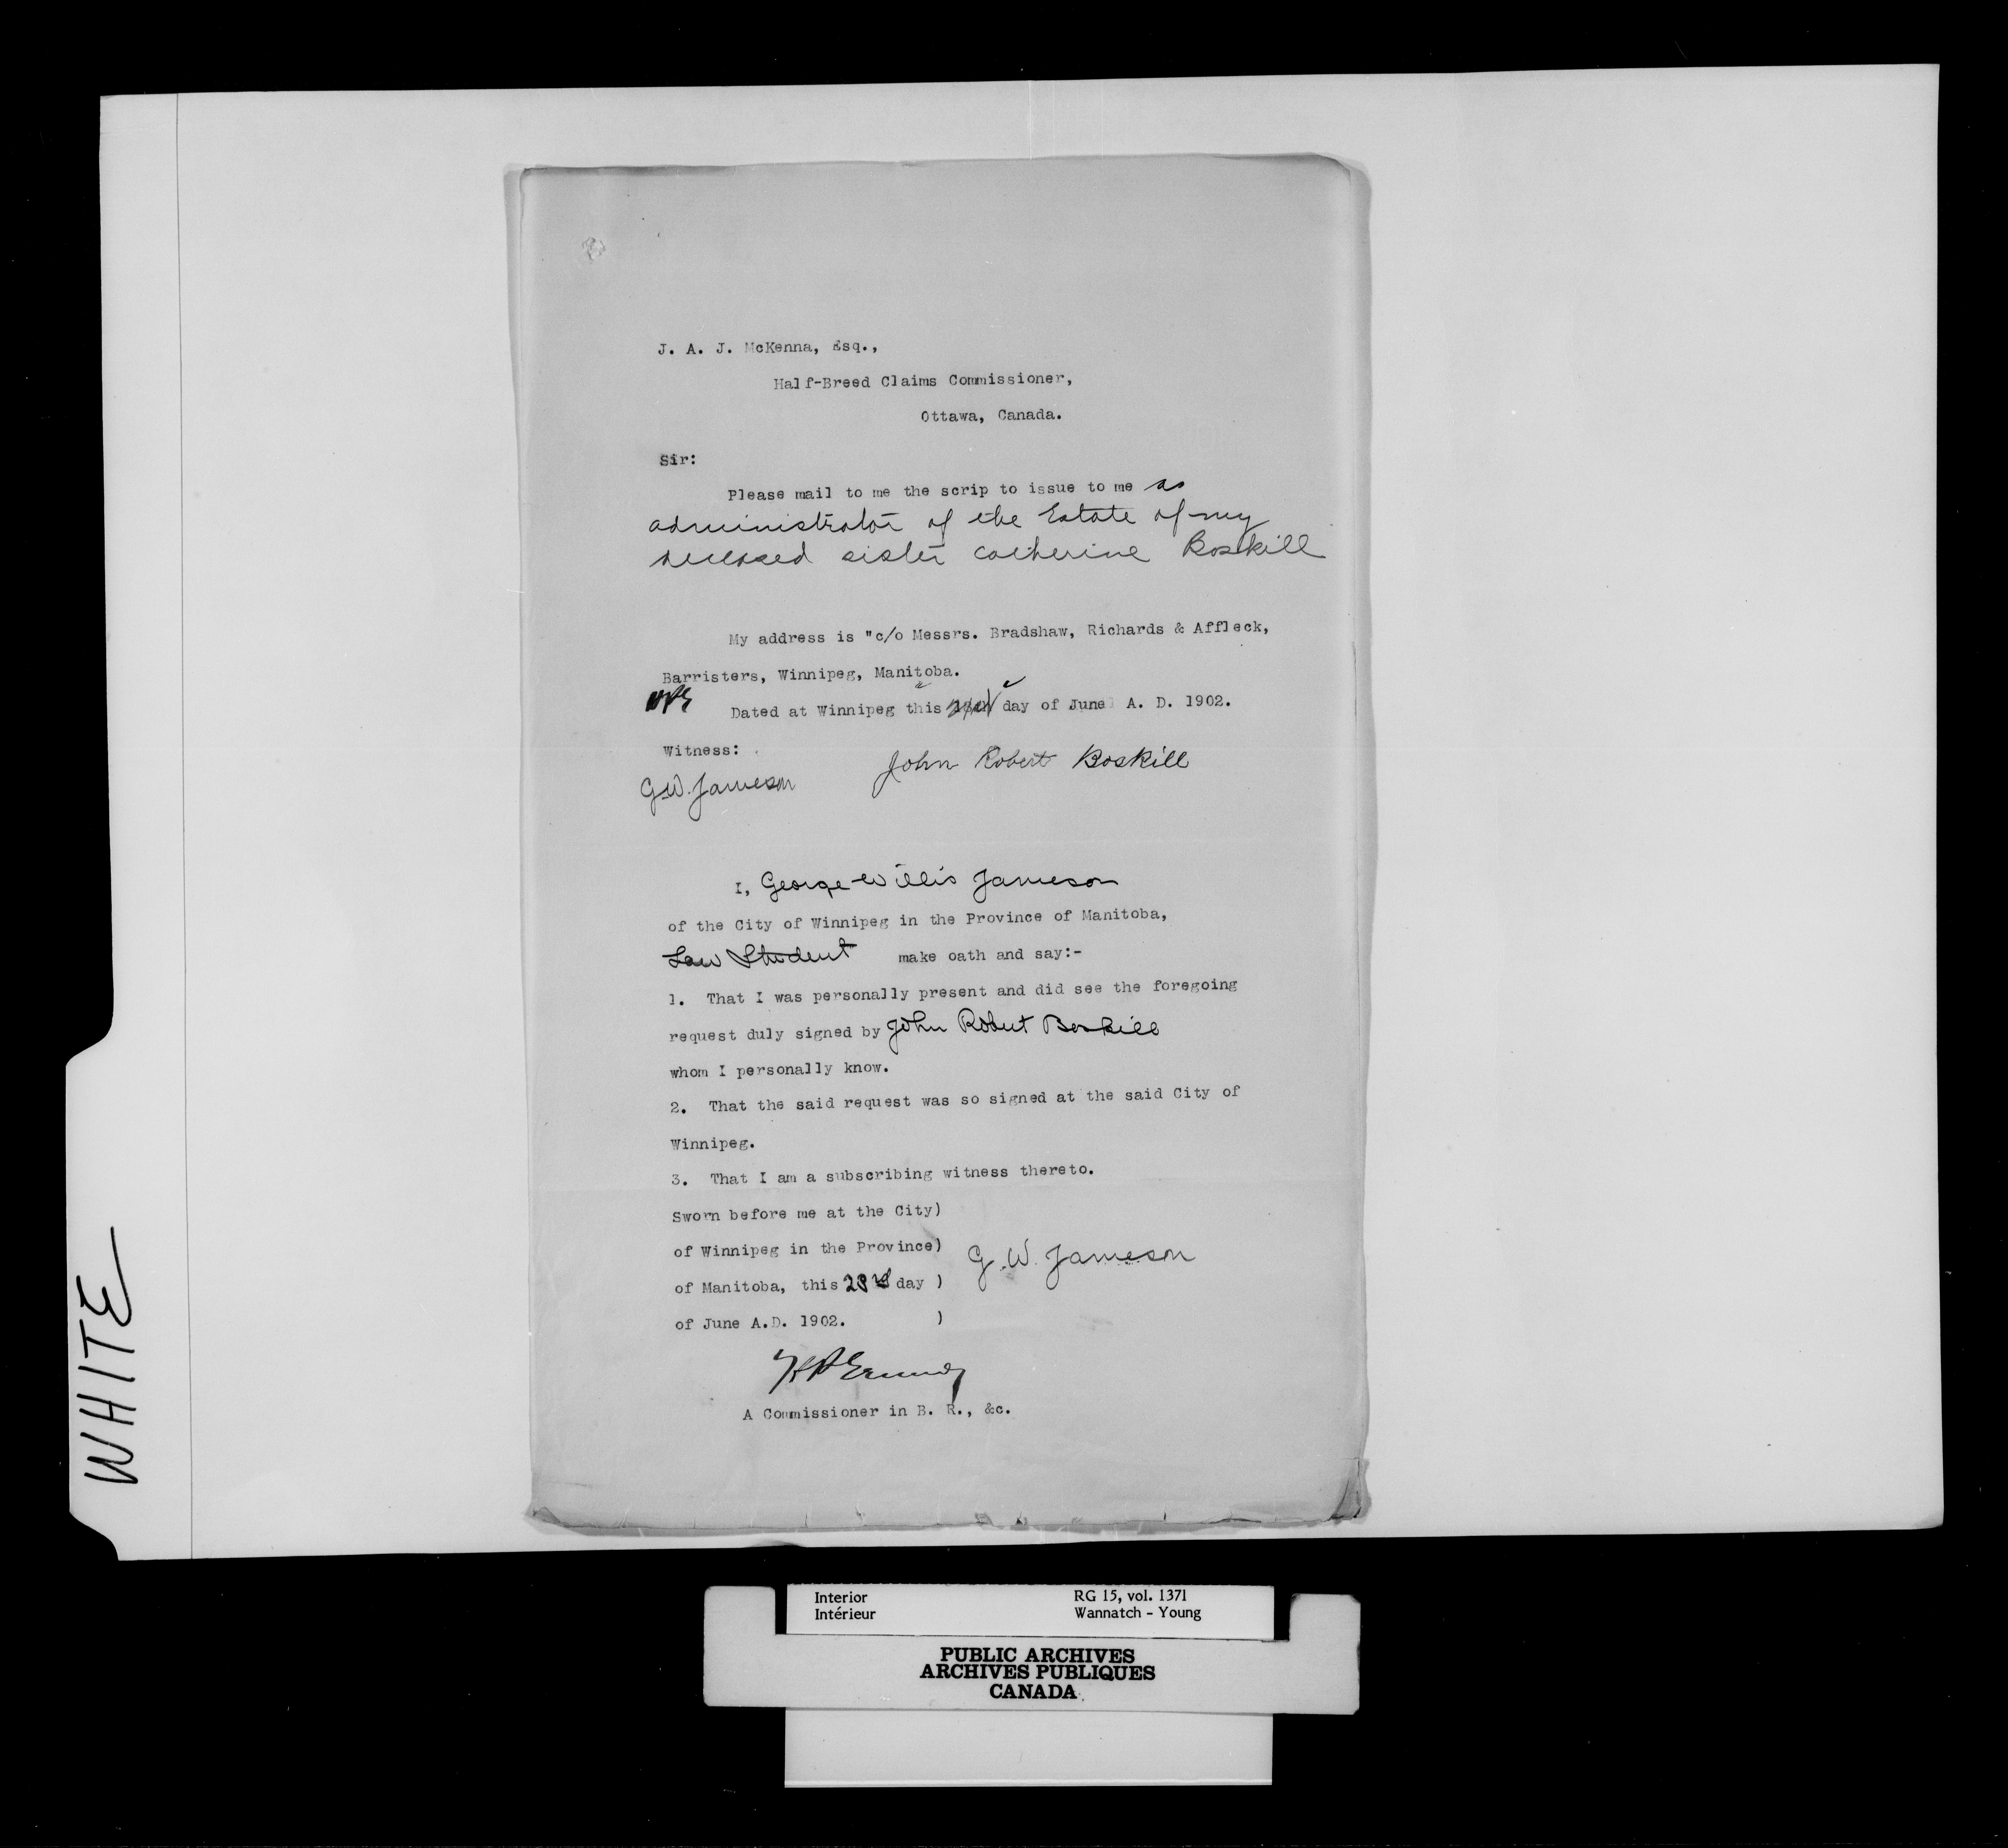 J. A. J. McKenna, Esq.,
Half-Breed Claims Commissioner,
Ottawa, Canada.
Sir:
Please mail to me the scrip to issue to me as
administrator of the Estate of my
deceased sister Catherine Boskill
My address is "c/o Messrs. Bradshaw, Richards & Affleck,
Barristers, Winnipeg, Manitoba.
Dated at Winnipeg this day of June A. D. 1902.
Witness:
John Robert Boskill
G.W. Jameson
I, George Willis Jameson
of the City of Winnipeg in the Province of Manitoba,
Law Student make oath and say:-
1. That I was personally present and did see the foregoing
request duly signed by John Robert Boskill
whom I personally know.
2. That the said request was so signed at the said City of
Winnipeg.
3. That I am a subscribing witness thereto.
Sworn before me at the City)
of Winnipeg in the Province)
G. W. Jameson
of Manitoba, this 23rd day )
of June A.D. 1902. )
A Commissioner in B. R., &c.
WHITE
Interior RG 15, vol. 1371
Intérieur Wannatch - Young
PUBLIC ARCHIVES
ARCHIVES PUBLIQUES
CANADA